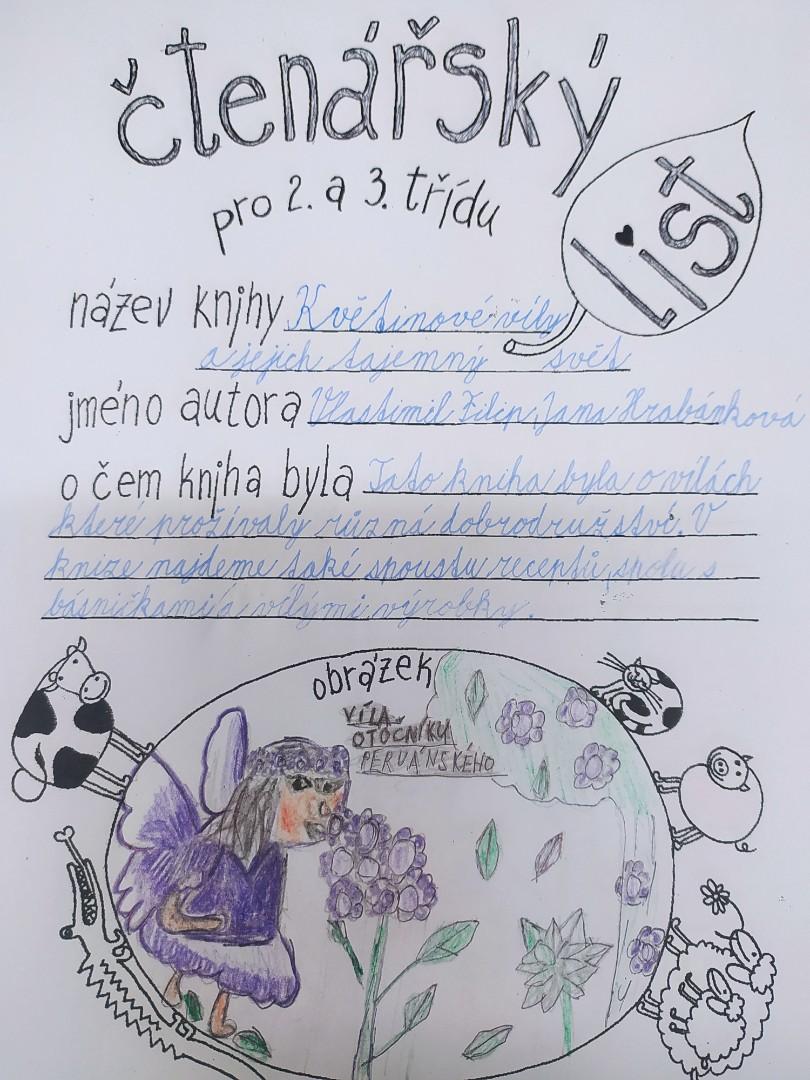 čtenářský
list
pro 2. a 3. třídu
název knihy Květinové víly
a jejich tajemný svět
jméno autora Vlastimil Filip, Jana Hrabánková
o čem kniha byla Tato kniha byla o vílách
které prožívaly různá dobrodružství. V
knize najdeme také spoustu receptů, spolu s
básničkami a vílými výrobky.
obrázek
VÍLA
OTOČNÍKU
PERUÁNSKÉHO